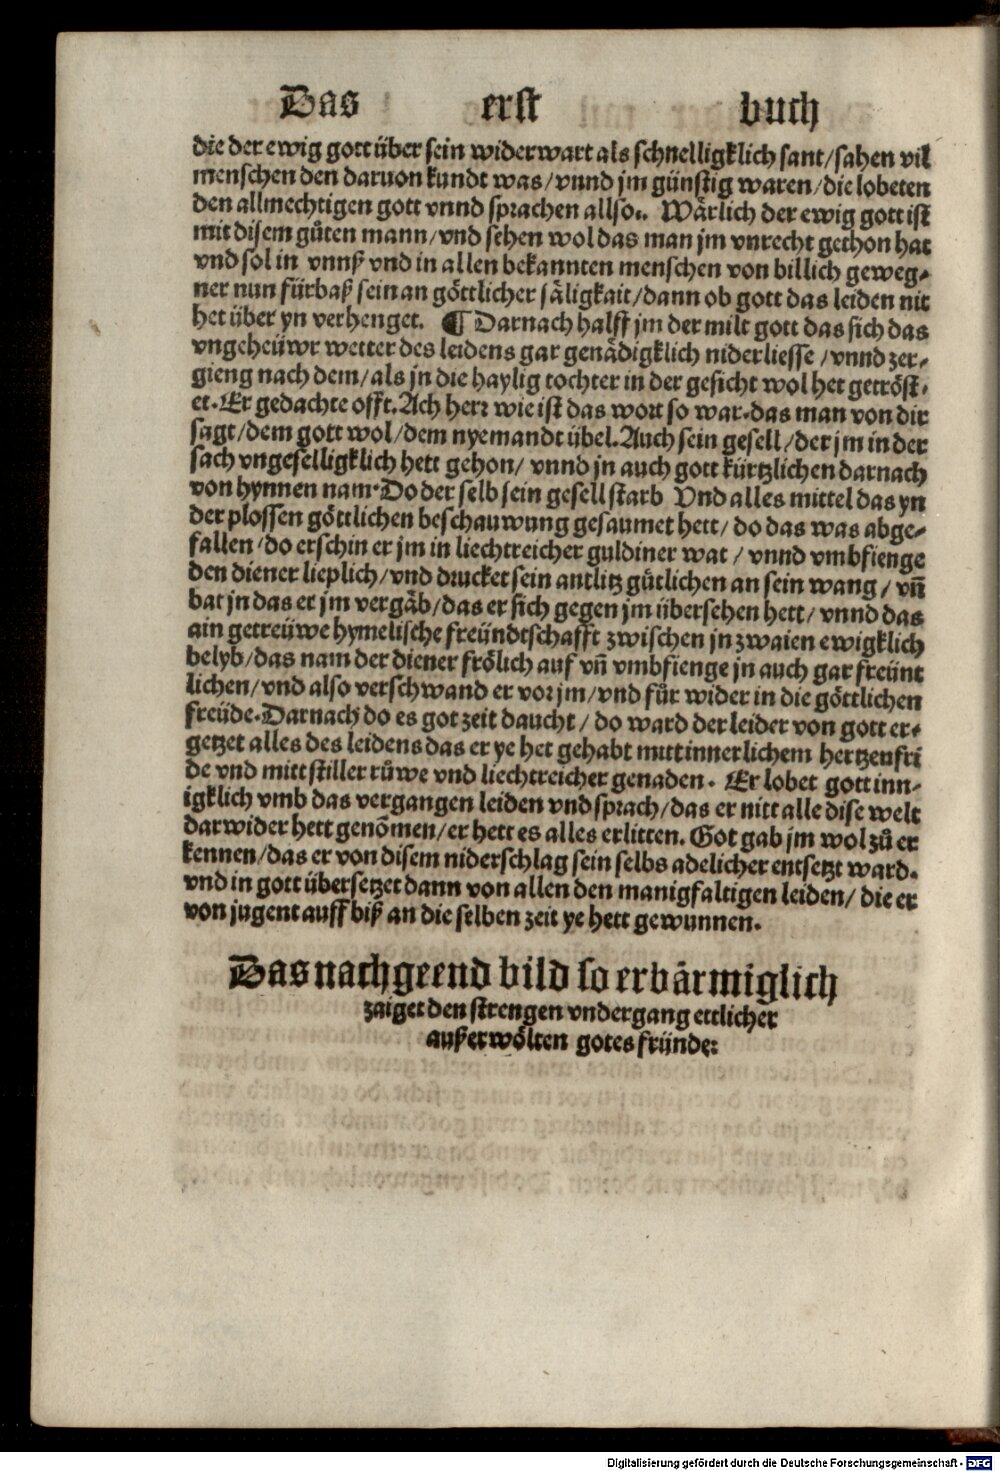 Das erst buch
die der ewig gott über sein widerwart als schnelligklich sant/sahen vil
menschen den daruon kundt was/vnnd jm günstig waren/die lobeten
den allmechtigen gott vnnd sprachen allso.. Wärlich der ewig gott ist
mit disem gůten mann/vnd sehen wol das man jm vnrecht gethon hat
vnd sol in vnnß vnd in allen bekannten menschen von billich geweg⸗
ner nun fürbaß sein an göttlicher säligkait/dann ob gott das leiden nit
het über yn verhenget. ¶ Darnach halff jm der milt gott das sich das
vngeheüwr wetter des leidens gar genädigklich niderliesse/vnnd zer⸗
gieng nach dem/als jn die haylig tochter in der gesicht wol het getröst⸗
et. Er gedachte offt. Ach herr wie ist das wort so war. das man von dir
sagt/dem gott wol/dem nyemandt übel. Auch sein gesell/der jm in der
sach vngeselligklich hett gehon/ vnnd jn auch gott kürtzlichen darnach
von hynnen nam. Do der selb sein gesell starb Vnd alles mittel das yn
der plossen göttlichen beschauwung gesaumet hett/ do das was abge⸗
fallen/do erschin er jm in liechtreicher guldiner wat / vnnd vmbfienge
den diener lieplich/vnd drucket sein antlitz gütlichen an sein wang / vn̄
bat jn das er jm vergäb/das er sich gegen jm übersehen hett/ vnnd das
ain getreüwe hymelische freündtschafft zwischen jn zwaien ewigklich
belyb/das nam der diener frölich auf vn̄ vmbfienge jn auch gar freünt
lichen/vnd also verschwand er vor jm/vnd für wider in die göttlichen
freüde. Darnach do es got zeit daucht / do ward der leider von gott er⸗
getzet alles des leidens das er ye het gehabt mitt innerlichem hertzenfri
de vnd mitt stiller růwe vnd liechtreicher genaden. Er lobet gott inn⸗
igklich vmb das vergangen leiden vnd sprach/das er nitt alle dise welt
darwider hett genōmen/er hett es alles erlitten. Got gab jm wol zů er
kennen/das er von disem niderschlag sein selbs adelicher entsetzt ward.
vnd in gott übersetzet dann von allen den manigfaltigen leiden/ die er
von jugent auff biß an die selben zeit ye hett gewunnen.
Das nachgeend bild so erbärmiglich
zaiget den strengen vndergang ettlicher
außerwölten gotes fründe:
Digitalisierung gefördert durch die Deutsche Forschungsgemeinschaft - DFG